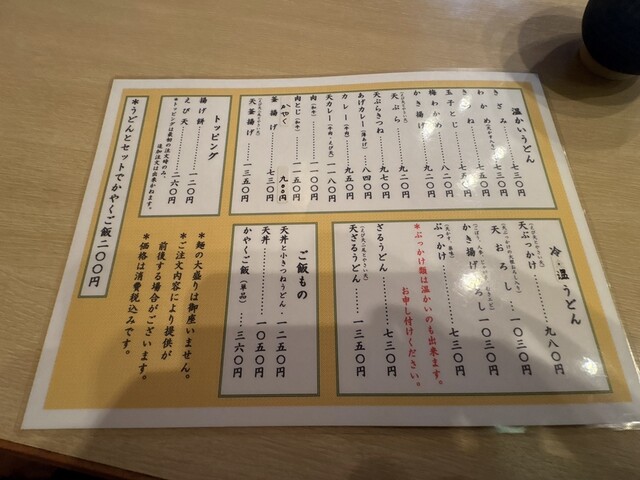 温かいうどん
きざみ 七三〇円
わかめ 七三〇円
きつね 七三〇円
玉子とじ 八二〇円
梅わかめ 八二〇円
かき揚げ 九二〇円
天ぷら 九二〇円
天ぷらきつね 九七〇円
あげカレー 八四〇円
カレー(牛肉) 九五〇円
天カレー(牛肉・えび天) 一一八〇円
肉(和牛) 一一〇〇円
肉とじ(和牛) 一一五〇円
かやく 九〇〇円
釜揚げ 七三〇円
天釜揚げ 一三五〇円
トッピング
揚げ餅 一二〇円
えび天 二六〇円
*トッピングは最初の注文時のみ、
追加注文は出来かねます。
*うどんとセットでかやくご飯二〇〇円
冷・温うどん
天ぷっかけ 九八〇円
天おろし 一〇三〇円
かき揚げおろし 一〇三〇円
ぶっかけ 七三〇円
*ぶっかけ類は温かいのも出来ます。
お申し付けください。
ざるうどん 七三〇円
天ざるうどん 一三五〇円
ご飯もの
天丼と小きつねうどん 一二五〇円
天丼 一〇五〇円
かやくご飯(単品) 三六〇円
*麺の大盛りは御座いません。
*ご注文内容により提供が
前後する場合がございます。
*価格は消費税込みです。